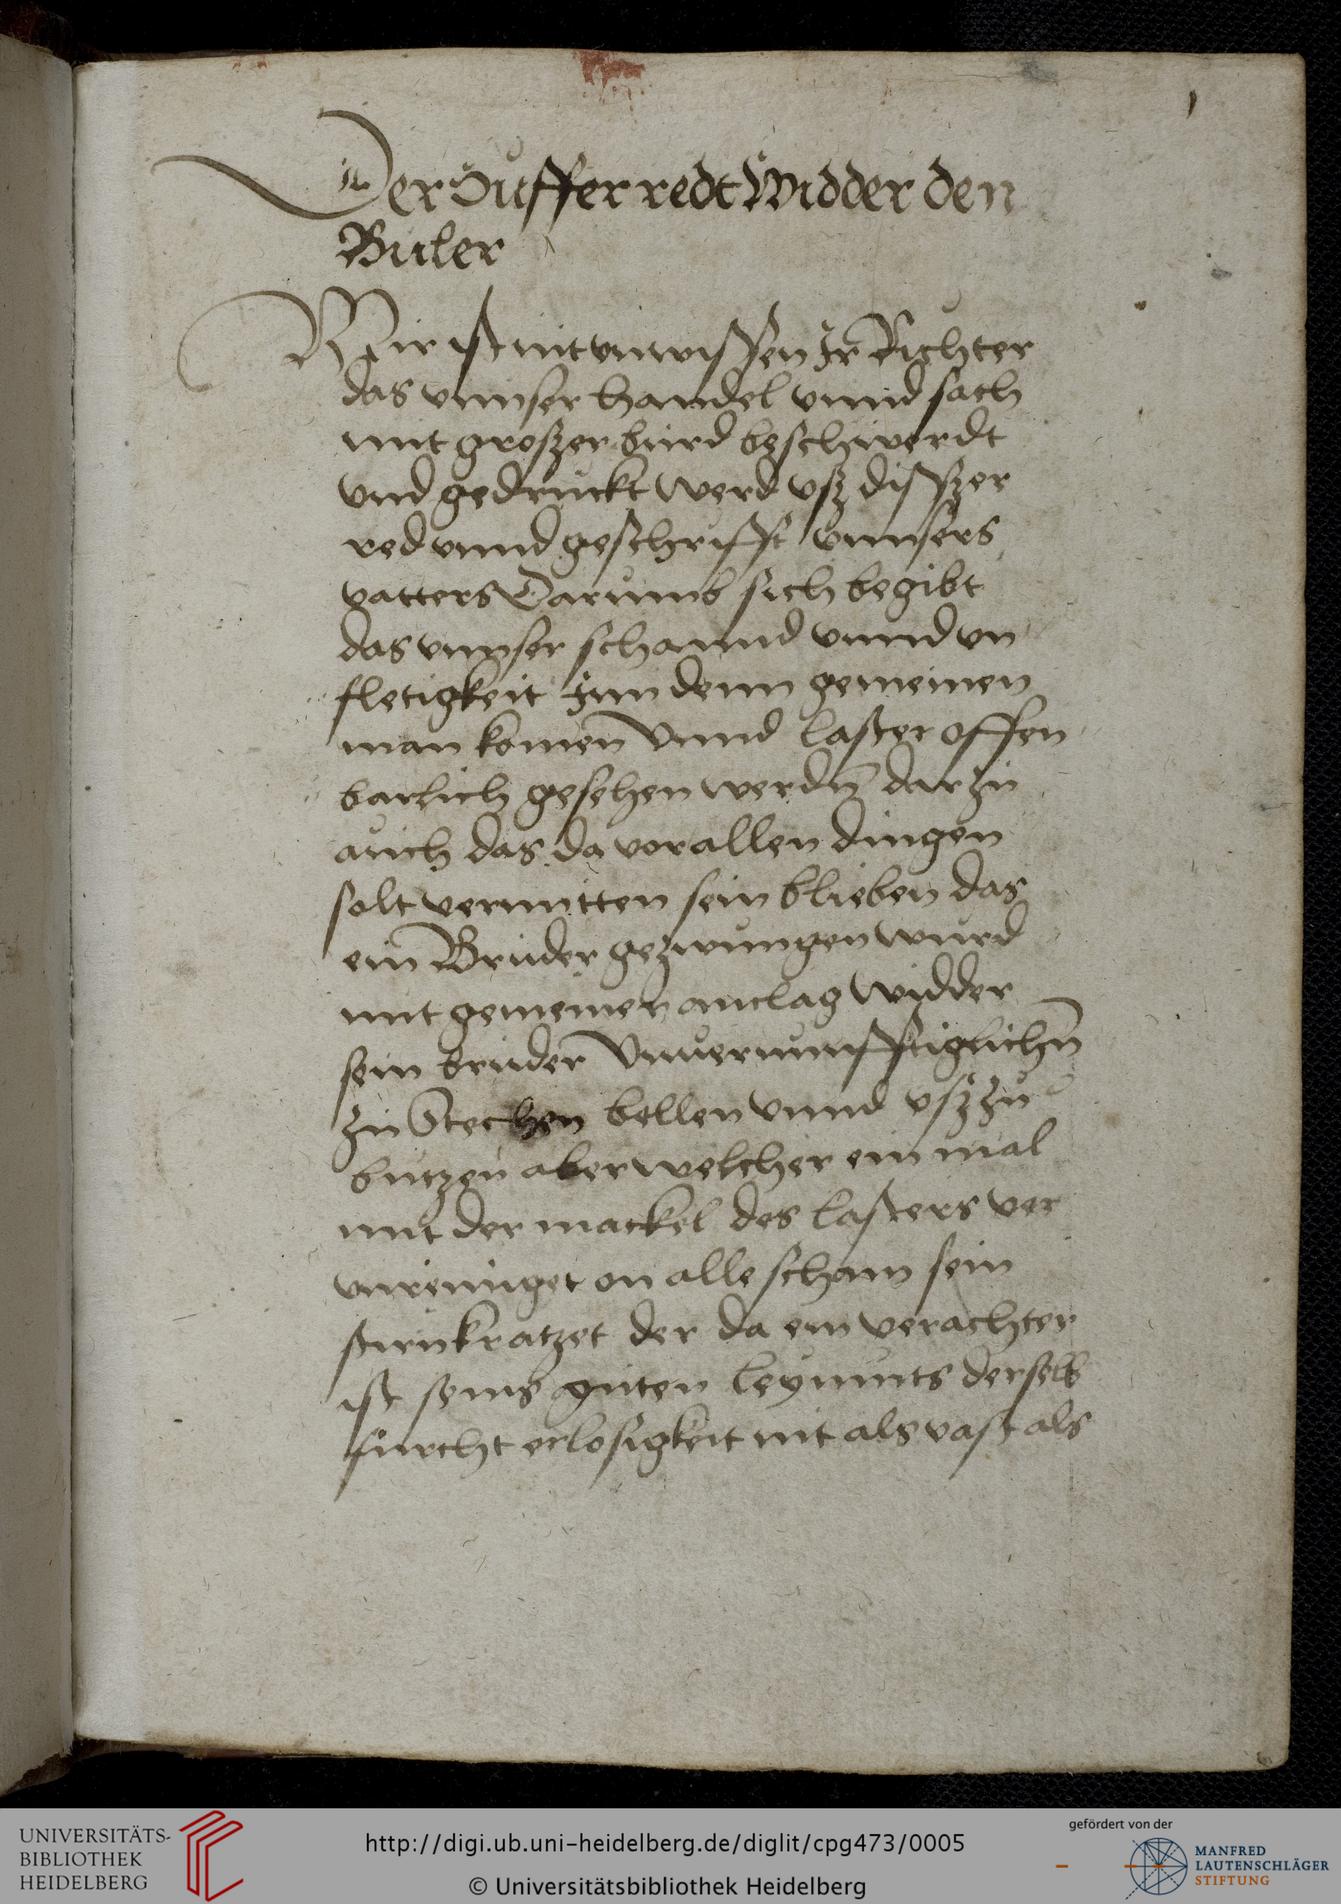 1
Der Suffer redt Widder den
Buler
Mir ist nit vnwissen Jr Richter
das vnnser handel vnnd sach
mit groszer bürd beschwerdt
vnd gedruckt werd vsz disszer
red vnnd geschrifft vnnsers
vatters Darumb sich begibt
das vnnser schannd vnnd vn
fletigkeit Jnn denn gemeinen
man komen Vnnd laster offen
barlich gesehen werdn̄ dar zu
auch das da vor allen dingen
solt vermitten sein blieben das
ein Bruder gezwungen wurd
mit gemeiner anclag widder
sein bruder Vnuernunfftiglichn̄
zu Stechen bellen vnnd vsz zu
butzen aber welcher ein mal
mit der mackel des lasters ver
vnreiniget on alle scham sein
stirn kratzet der da ein verachter
ist seins guten leymuts derselb
fürcht erlosigkeit nit als vast als
UNIVERSITÄTS-
BIBLIOTHEK
HEIDELBERG
http://digi.ub.uni-heidelberg.de/diglit/cpg473/0005
© Universitätsbibliothek Heidelberg
gefördert von der
MANFRED
LAUTENSCHLÄGER
STIFTUNG